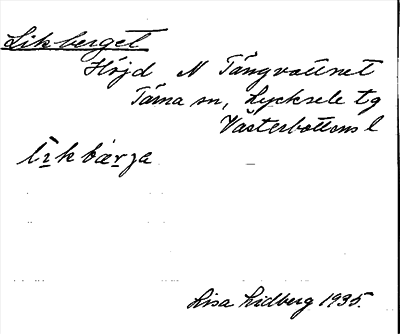 Likberget
Höjd N Tängvattnet
Tärna sn, Lycksele tg
Västerbottens l
līkbærja
Lisa Lidberg 1935.